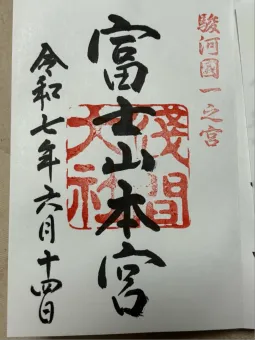 駿河國一之宮
富士山本宮
淺間大社
令和七年六月十四日